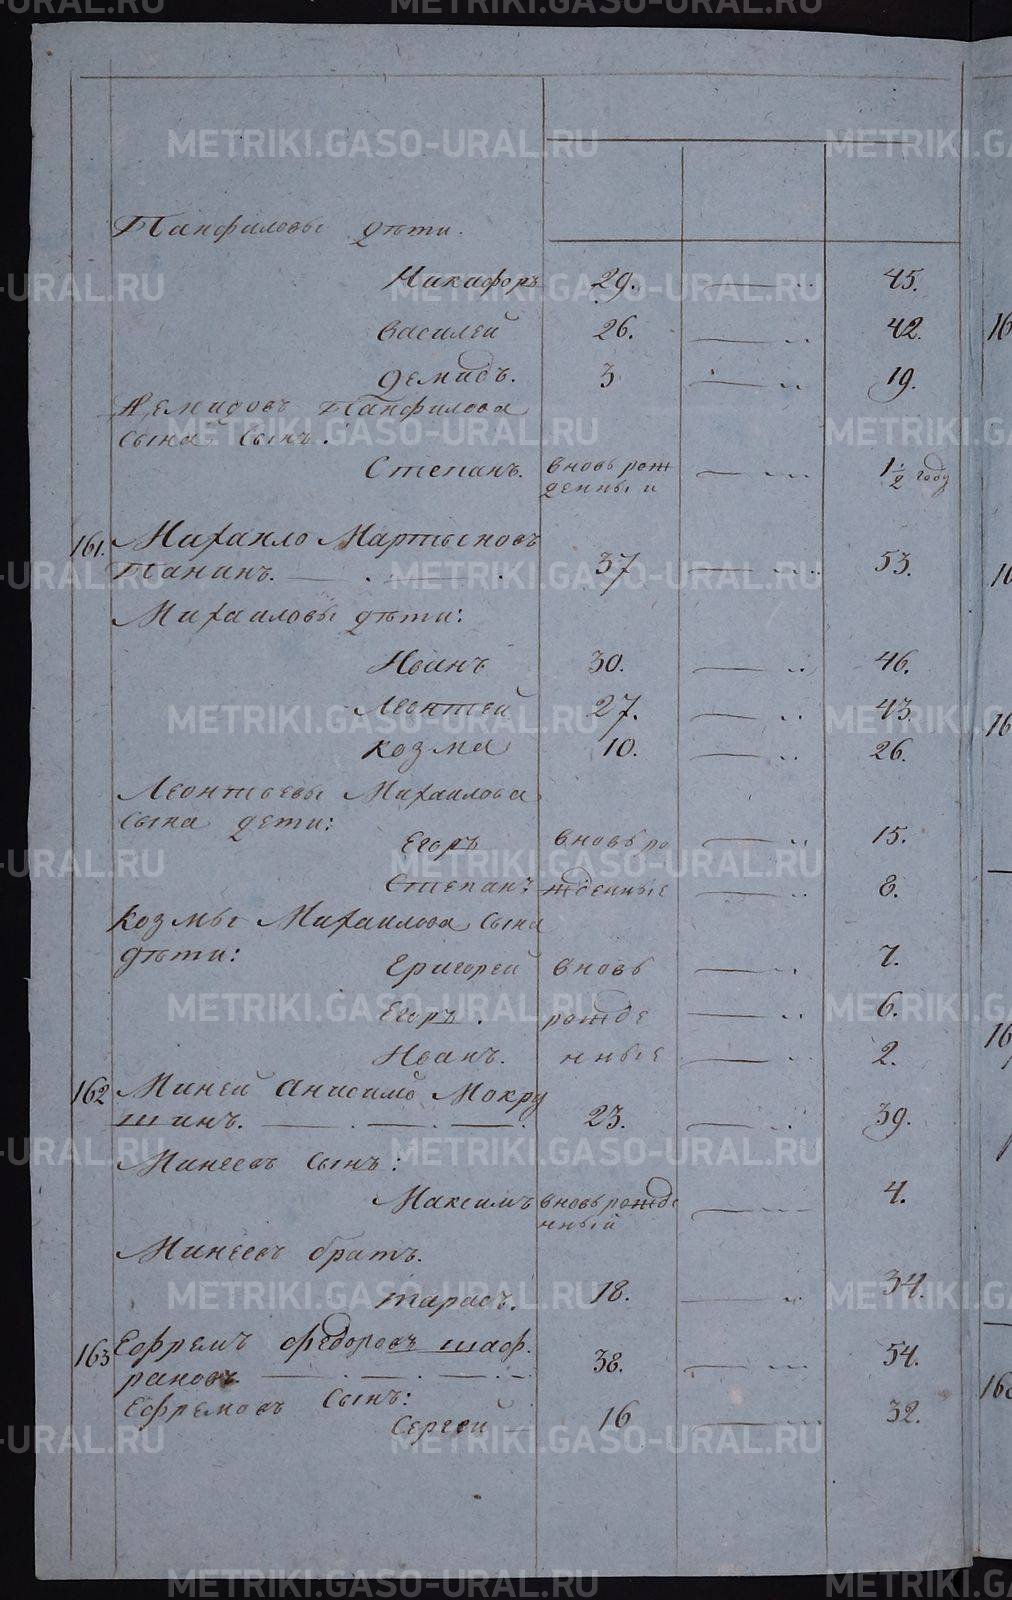 Панфиловы дѣти.
Никафоръ 29. 45.
Василей 26. 42.
Демидъ. 3 19.
Демидовъ Панфилова
сына сынъ.
Степанъ. вновь рож 1 1/2 году
денный
161. Михайло Мартыновъ
Панинъ. 37 53.
Михаиловы дѣти:
Иванъ 30. 46.
Леонтей 27. 43.
Козма 10. 26.
Леонтьевы Михаилова
сына дети:
Егоръ вновь ро 15.
Степанъ жденные 8.
Козмы Михаилова сына
дѣти:
Григорей вновь 7.
Егоръ. рожде 6.
Иванъ. нные 2.
162 Миней Анисимо Мокру
шинъ. 23. 39.
Минеевъ сынъ:
Максимъ вновь рожде 4.
нный
Минеевъ братъ.
Тарасъ. 18. 34.
163 Ефремъ Федоровъ Шаф
рановъ 38. 54.
Ефремовъ сынъ:
Сергей 16 32.
METRIKI.GASO-URAL.RU